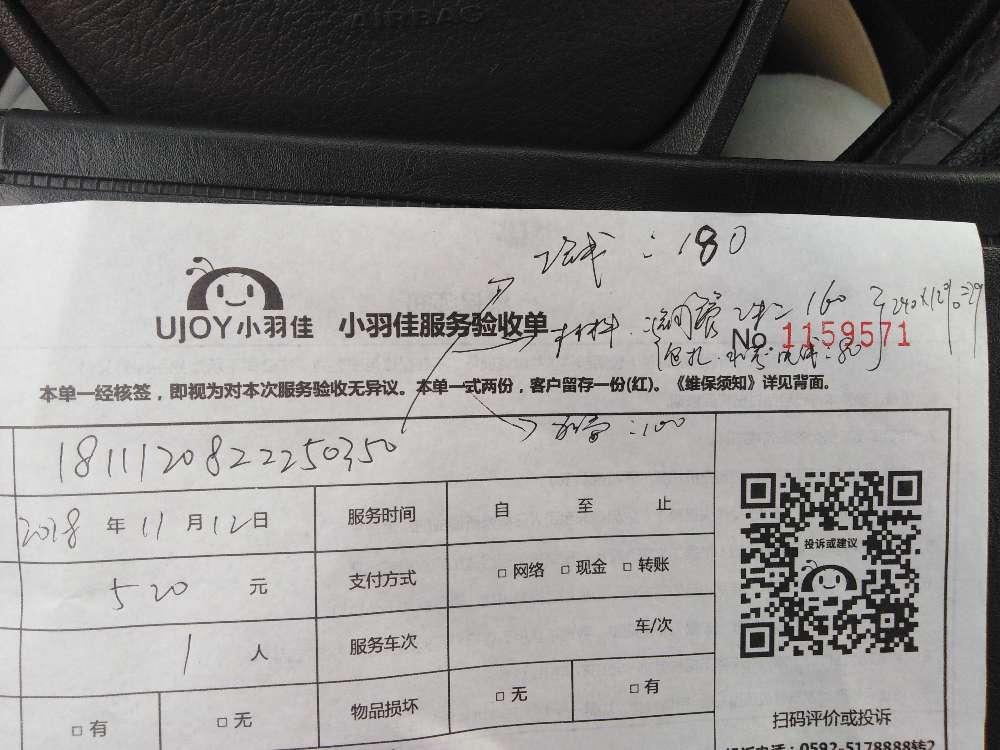 AIRBAG
:180
UJOY小羽佳 小羽佳服务验收单
材料: 160 240×12%=29
No. 1159571
:80
本单一经核签，即视为对本次服务验收无异议。本单一式两份，客户留存一份(红)。《维保须知》详见背面。
:100
1811120822250350
2018年11月12日 服务时间 自 至 止
520 元 支付方式 □网络 □现金 □转账
1 人 服务车次 车/次
□有 □无 物品损坏 □无 □有
投诉或建议
扫码评价或投诉
投诉电话：0592-5178888转2